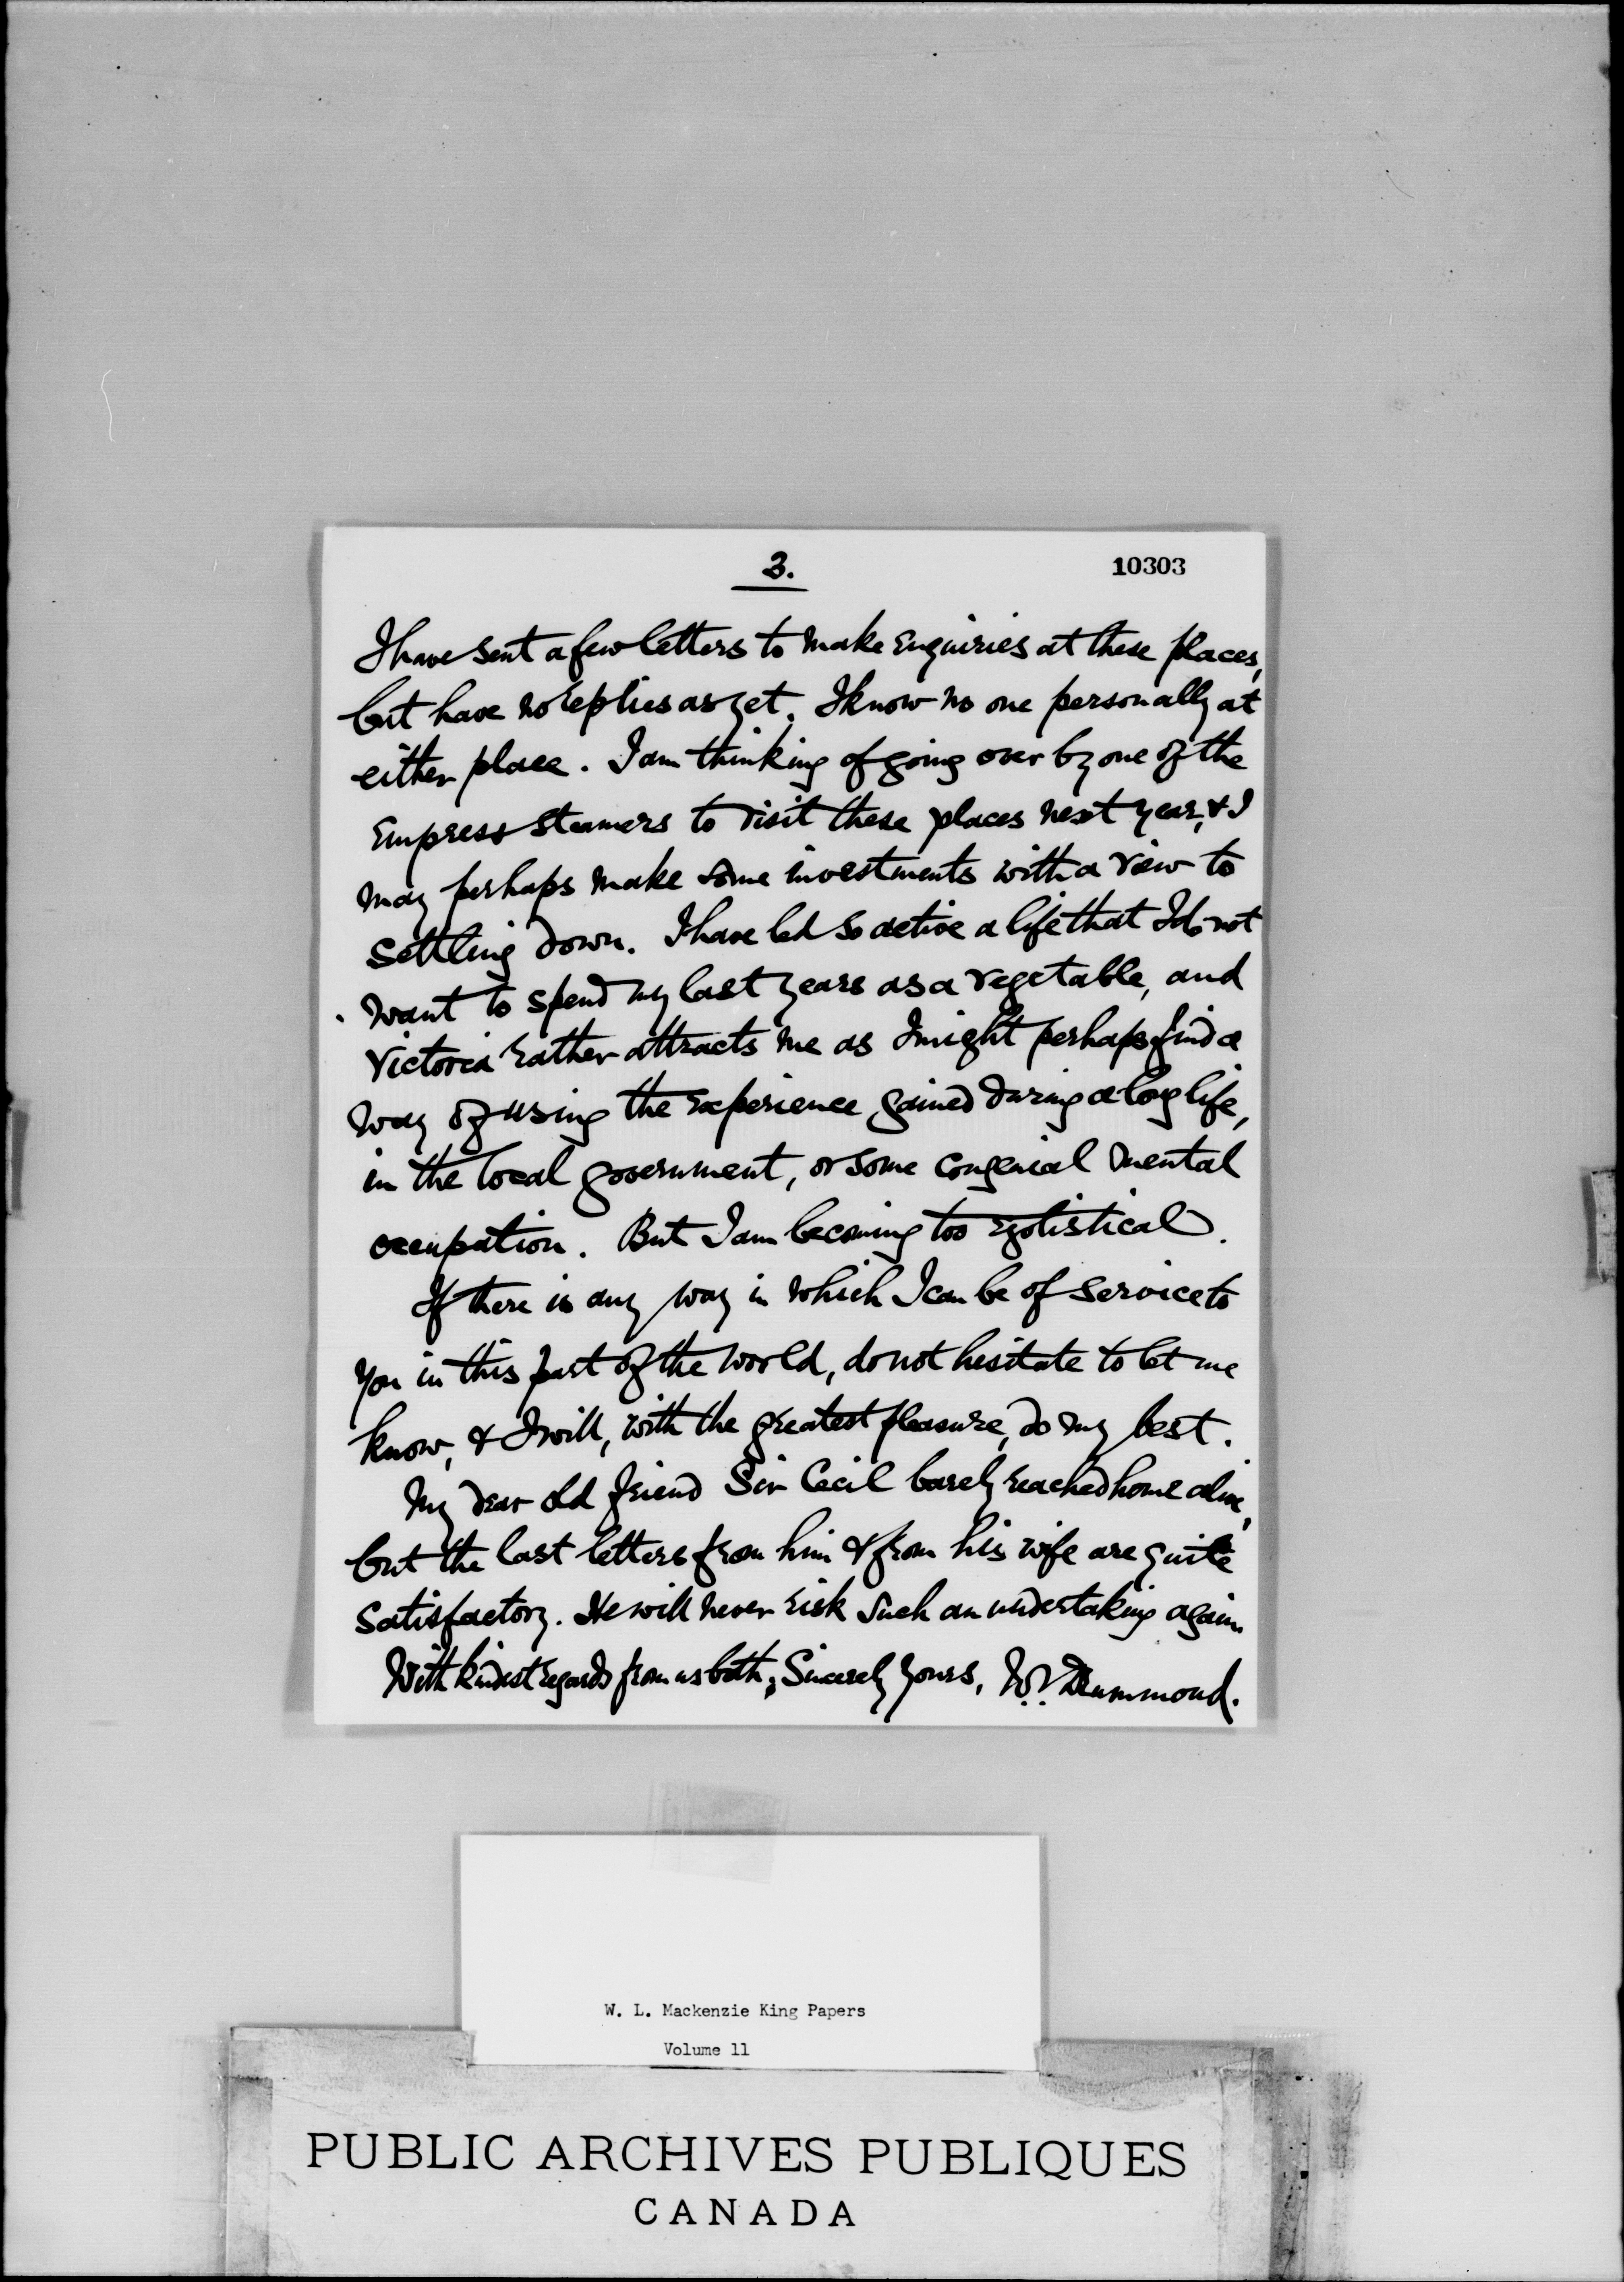 3.
10303
I have sent a few letters to make enquiries at these places,
but have no replies as yet. I know no one personally at
either place. I am thinking of going over by one of the
Empress steamers to visit these places next year, & I
may perhaps make some investments with a view to
settling down. I have led so active a life that I do not
want to spend my last years as a vegetable, and
Victoria rather attracts me as I might perhaps find a
way of using the experience gained during a long life,
in the local government, or some congenial mental
occupation. But I am becoming too egotistical.
If there is any way in which I can be of service to
you in this part of the world, do not hesitate to let me
know, & I will, with the greatest pleasure, do my best.
My dear old friend Sir Cecil barely reached home alive,
but the last letters from him & from his wife are quite
satisfactory. He will never risk such an undertaking again.
With kindest regards from us both, Sincerely yours, W.V. Drummond.
W. L. Mackenzie King Papers
Volume 11
PUBLIC ARCHIVES PUBLIQUES
CANADA